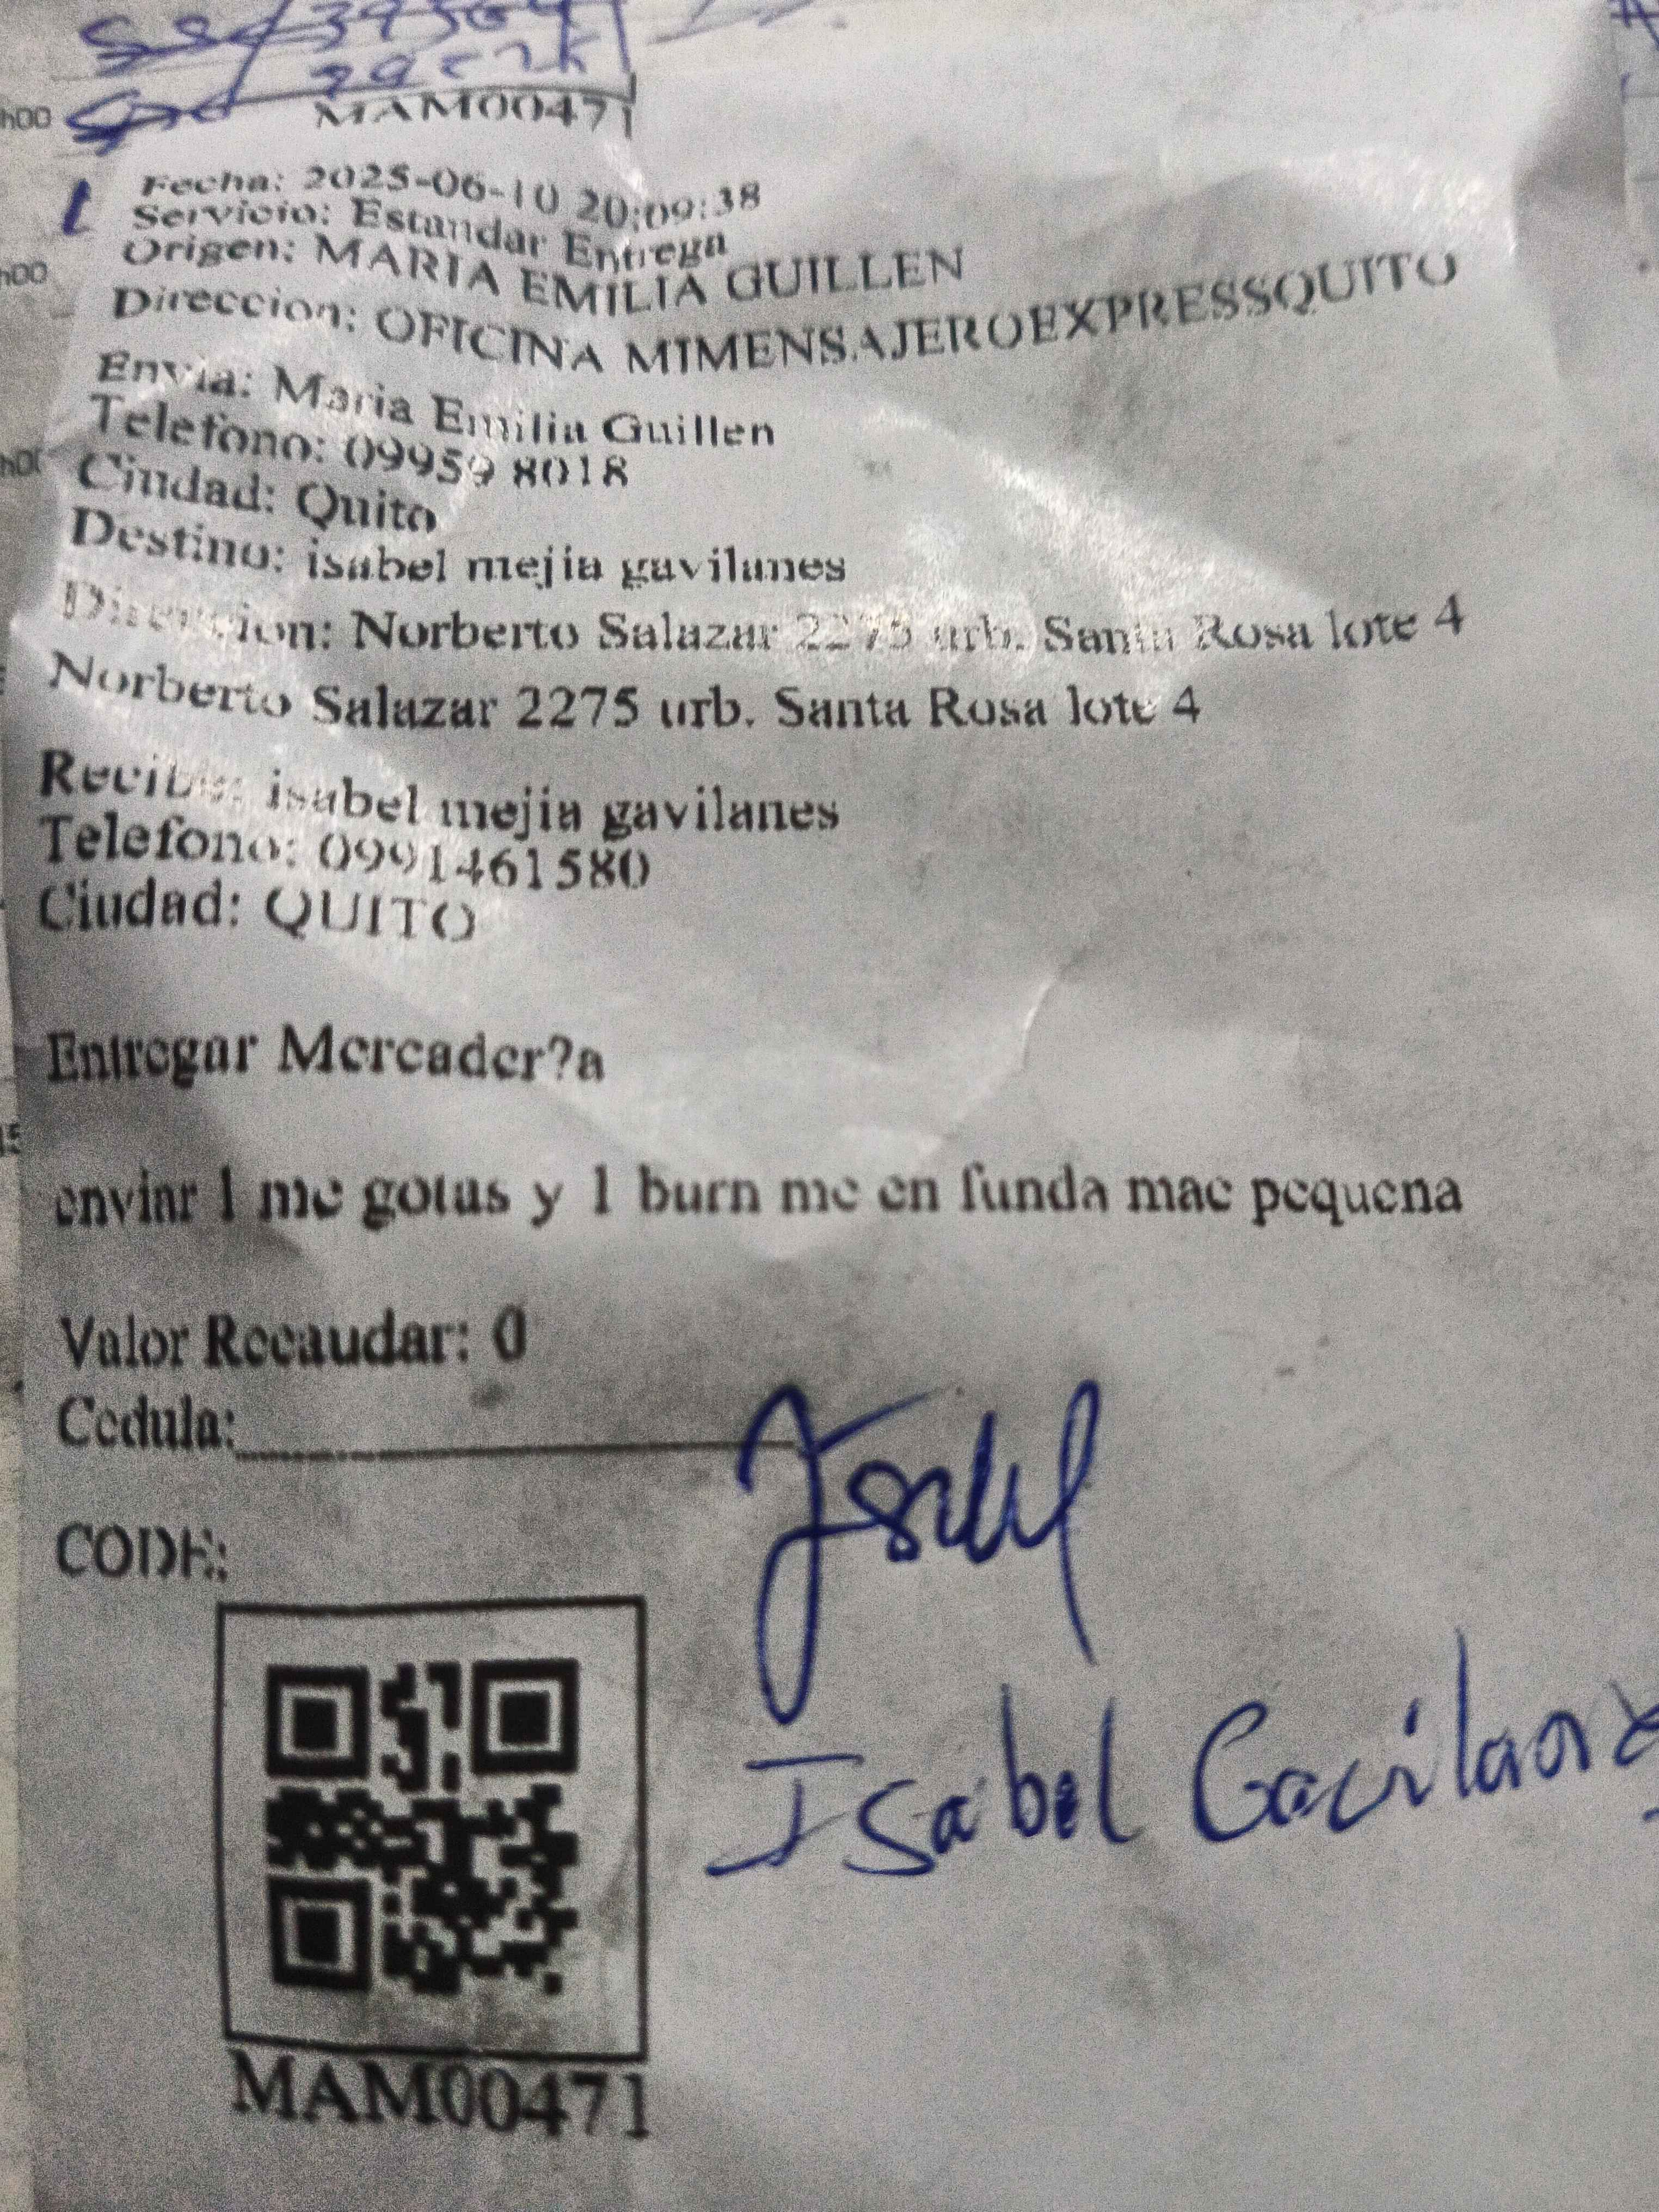 MAM00471
Fecha: 2025-06-10 20:09:38
Servicio: Estandar Entrega
Origen: MARIA EMILIA GUILLEN
Direccion: OFICINA MIMENSAJEROEXPRESSQUITO
Envia: Maria Emilia Guillen
Telefono: 09959 8018
Ciudad: Quito
Destino: isabel mejia gavilanes
Direccion: Norberto Salazar 2275 urb. Santa Rosa lote 4
Norberto Salazar 2275 urb. Santa Rosa lote 4
Recibe: isabel mejia gavilanes
Telefono: 0991461580
Ciudad: QUITO
Entregar Mercader?a
enviar 1 mc gotas y 1 burn mc en funda mac pequena
Valor Recaudar: 0
Cedula:
Isabel
CODE:
Isabel Gavilanes
MAM00471